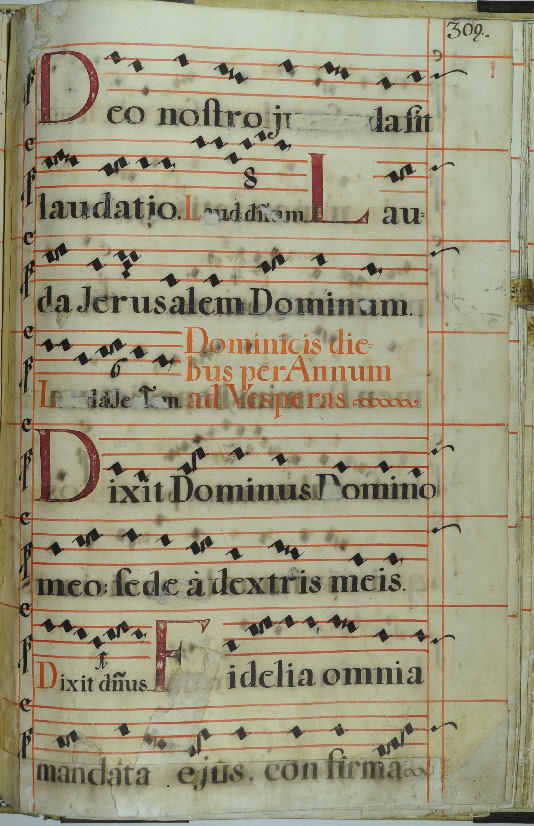 309.
Deo nostro ju dasit
laudatio. Laud dñum Lau:
8
da Jerusalem Dominum.
6
Dominicis die-
bus per Annum
ad Vesperas
Dixit Dominus Domino
meo: sede à dextris meis.
1
Dixit dñus Fidelia omnia
mandata ejus. confirma